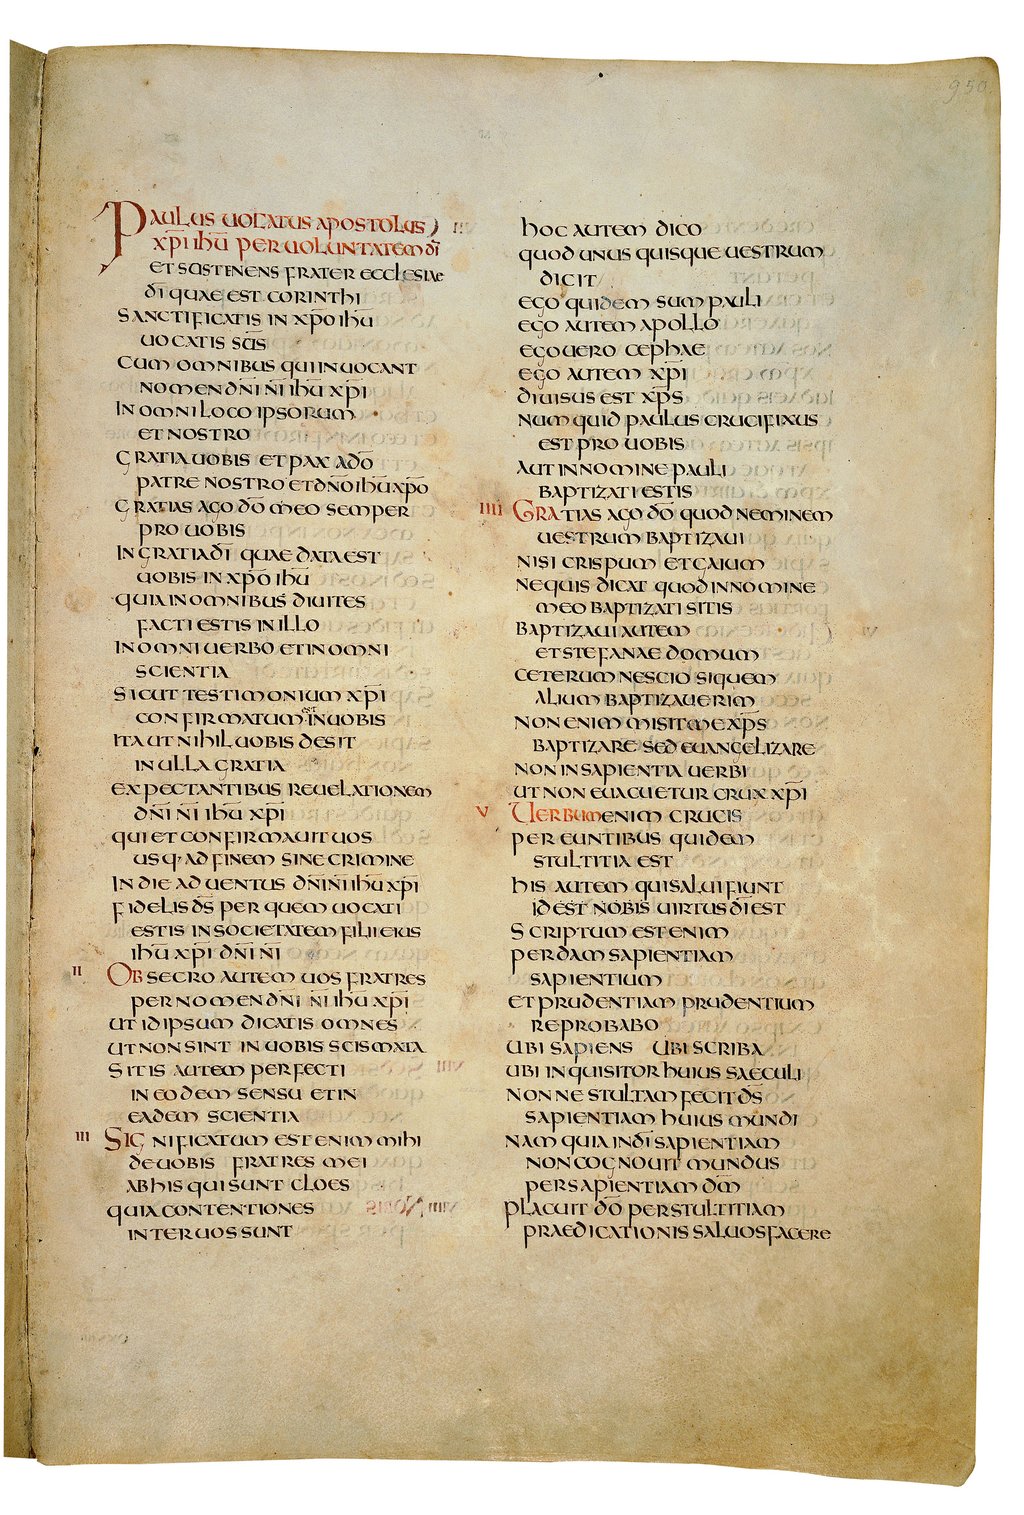 950
PAULUS UOCATUS APOSTOLUS
XP̄I IHŪ PER UOLUNTATEM D̄I
ET SUSTENENS FRATER ECCLESIAE
D̄I QUAE EST CORINTHI
SANCTIFICATIS IN XP̄O IHŪ
UOCATIS SC̄IS
CUM OMNIBUS QUI INUOCANT
NOMEN DN̄I N̄I IHŪ XP̄I
IN OMNI LOCO IPSORUM
ET NOSTRO
GRATIA UOBIS ET PAX A D̄O
PATRE NOSTRO ET DN̄O IHŪ XP̄O
GRATIAS AGO D̄O MEO SEMPER
PRO UOBIS
IN GRATIA D̄I QUAE DATA EST
UOBIS IN XP̄O IHŪ
QUIA IN OMNIBUS DIUITES
FACTI ESTIS IN ILLO
IN OMNI UERBO ET IN OMNI
SCIENTIA
SICUT TESTIMONIUM XP̄I
CONFIRMATUM EST IN UOBIS
ITA UT NIHIL UOBIS DESIT
IN ULLA GRATIA
EXPECTANTIBUS REUELATIONEM
DN̄I N̄I IHŪ XP̄I
QUI ET CONFIRMAUIT UOS
USQ· AD FINEM SINE CRIMINE
IN DIE ADUENTUS DN̄I N̄I IHŪ XP̄I
FIDELIS D̄S PER QUEM UOCATI
ESTIS IN SOCIETATEM FILII EIUS
IHŪ XP̄I DN̄I N̄I
II OBSECRO AUTEM UOS FRATRES
PER NOMEN DN̄I N̄I IHŪ XP̄I
UT ID IPSUM DICATIS OMNES
UT NON SINT IN UOBIS SCISMATA
SITIS AUTEM PERFECTI
IN EODEM SENSU ET IN
EADEM SCIENTIA
III SIGNIFICATUM EST ENIM MIHI
DE UOBIS FRATRES MEI
AB HIS QUI SUNT CLOES
QUIA CONTENTIONES
INTER UOS SUNT
HOC AUTEM DICO
QUOD UNUS QUISQUE UESTRUM
DICIT
EGO QUIDEM SUM PAULI
EGO AUTEM APOLLO
EGO UERO CEPHAE
EGO AUTEM XP̄I
DIUISUS EST XP̄S
NUMQUID PAULUS CRUCIFIXUS
EST PRO UOBIS
AUT IN NOMINE PAULI
BAPTIZATI ESTIS
IIII GRATIAS AGO D̄O QUOD NEMINEM
UESTRUM BAPTIZAUI
NISI CRISPUM ET GAIUM
NE QUIS DICAT QUOD IN NOMINE
MEO BAPTIZATI SITIS
BAPTIZAUI AUTEM
ET STEFANAE DOMUM
CETERUM NESCIO SI QUEM
ALIUM BAPTIZAUERIM
NON ENIM MISIT ME XP̄S
BAPTIZARE SED EUANGELIZARE
NON IN SAPIENTIA UERBI
UT NON EUACUETUR CRUX XP̄I
V UERBUM ENIM CRUCIS
PEREUNTIBUS QUIDEM
STULTITIA EST
HIS AUTEM QUI SALUI FIUNT
ID EST NOBIS UIRTUS D̄I EST
SCRIPTUM EST ENIM
PERDAM SAPIENTIAM
SAPIENTIUM
ET PRUDENTIAM PRUDENTIUM
REPROBABO
UBI SAPIENS UBI SCRIBA
UBI INQUISITOR HUIUS SAECULI
NONNE STULTAM FECIT D̄S
SAPIENTIAM HUIUS MUNDI
NAM QUIA IN D̄I SAPIENTIAM
NON COGNOUIT MUNDUS
PER SAPIENTIAM D̄M
PLACUIT D̄O PER STULTITIAM
PRAEDICATIONIS SALUOS FACERE